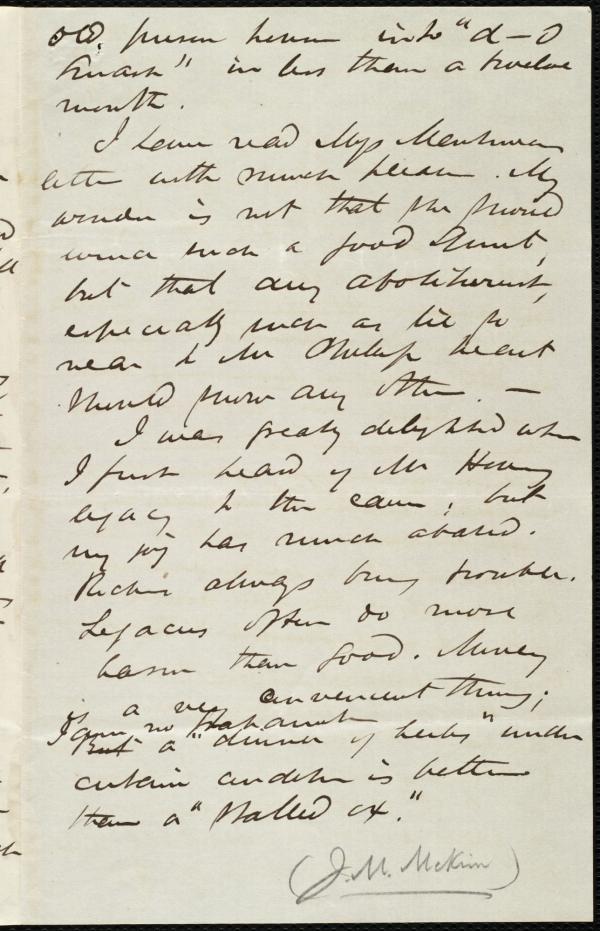 old, person  into "d—d
 in less than a twelve
month.
I have read Miss 
letter with much . My
wonder is not that she should
 such a good ,
but that any abolitionist,
especially such as  so
near to Mr  heart
should  any other. —
I was greatly delighted when
I first heard of Mr Hovey
legacy to the cause; but
my joy has much abated.
Riches always bring trouble.
Legacies often do more
harm than good. Money
is a very convenient thing;
I am no 
But a "dinner of herbs" under
certain condition is better
than a "stalled ox."
(J. M. McKim)